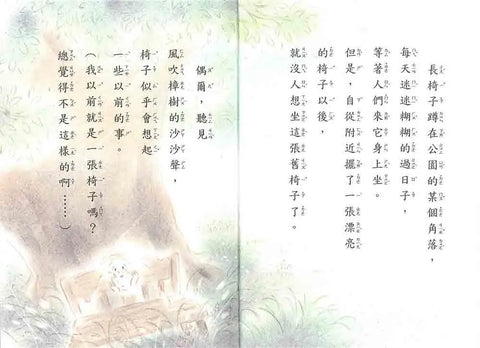 長椅子蹲在公園的某個角落，
每天迷迷糊糊的過日子，
等著人們來它身上坐。
但是，自從附近擺了一張漂亮
的椅子以後，
就沒人想坐這張舊椅子了。
偶爾，聽見
風吹樟樹的沙沙聲，
椅子似乎會想起
一些以前的事。
（我以前就是一張椅子嗎？
總覺得不是這樣的啊……）